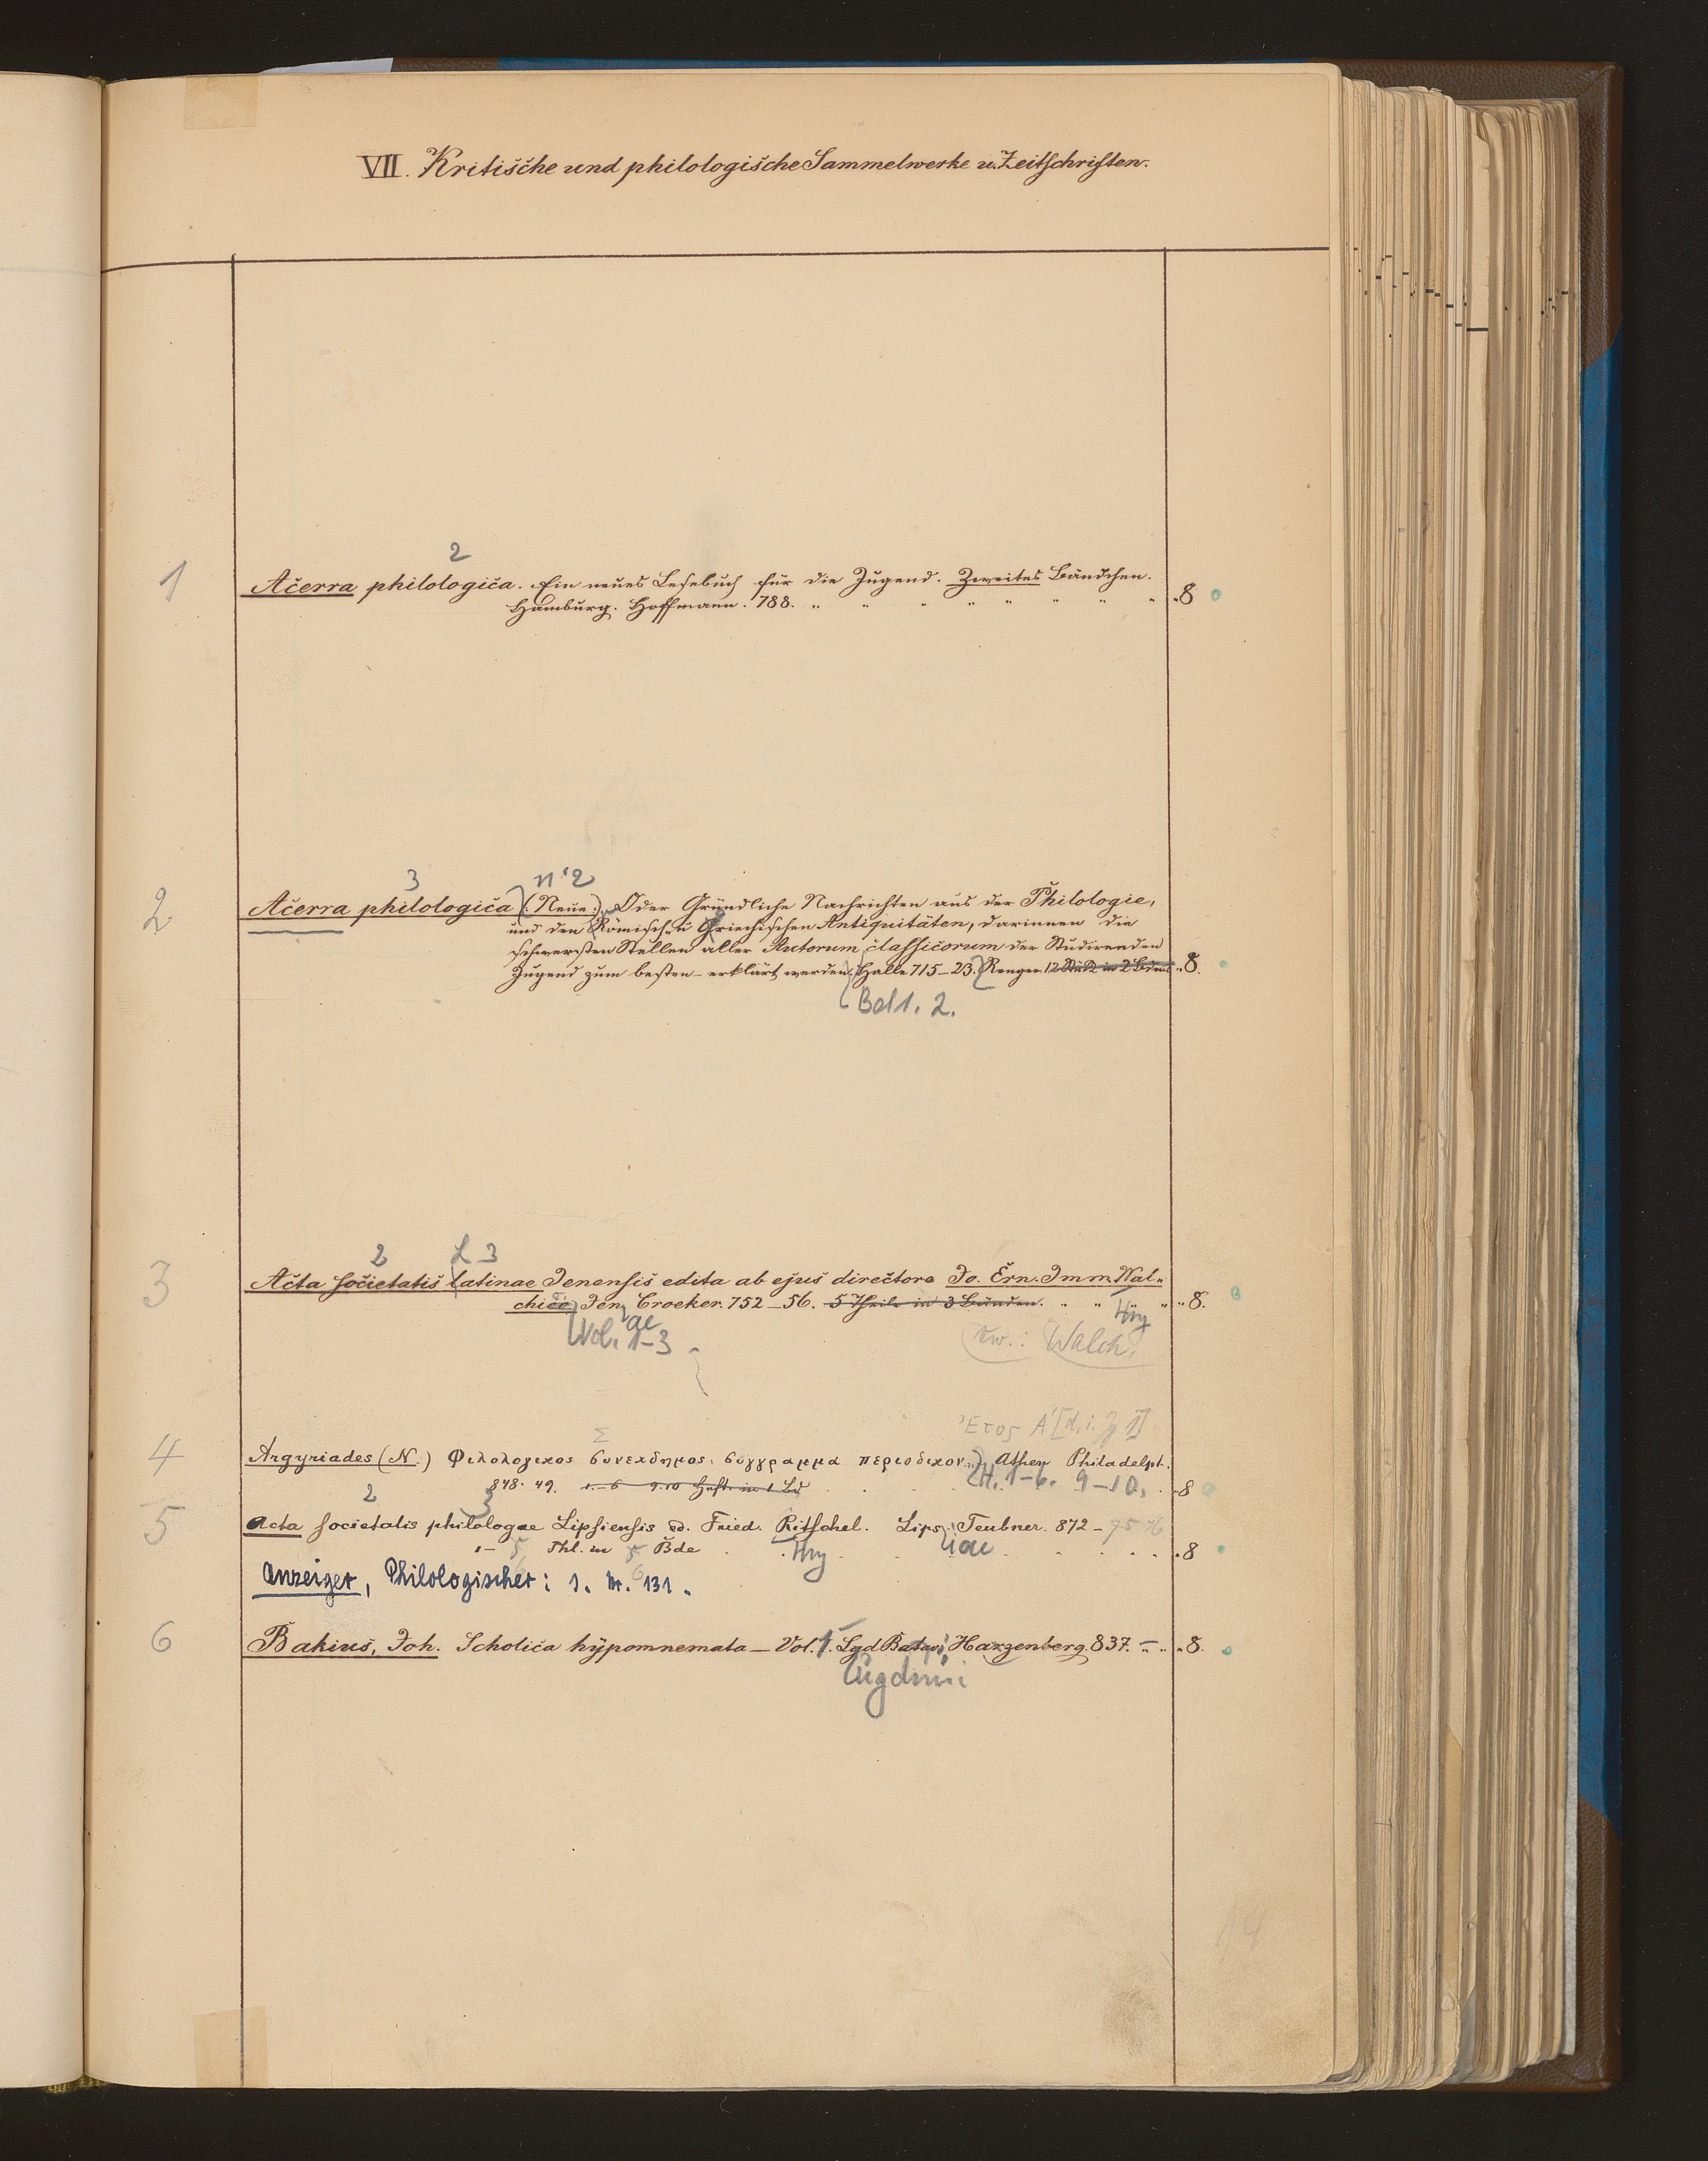 VII. Kritische und philologische Sammelwerke u. Zeitschriften.
2
1 Acerra philologica. Ein neues Lesebuch für die Jugend. Zweites Bändchen.
Hamburg. Hoffmann. 788. " " " " " " " " "8
3 n'2
2 Acerra philologica (Neue:) Oder Gründliche Nachrichten aus der Philologie,
und den Römisch- u Griechischen Antiquitäten, darinnen die
schwersten Stellen aller Autorum classicorum der Studirenden
Jugend zum besten - erklärt werden. Halle 715-23. Renger. 12 Stück in 2 Bden "8.
Bd 1. 2.
2 L 3
3 Acta societatis latinae Jenensis edita ab ejus directore Jo. Ern. Imm. Wal-
chico Jen Croeker. 752-56. 5 Theile in 3 Bänden. " " " " "8.
Vol. 1-3 ae Hrg
vw.: Walch.
Ἔτος Α' [d. i. Jg 1]
Σ
4 Argyriades (N.) Φιλολογικος συνεκδημος, συγγραμμα περιοδικον. Athen Philadelph.
848. 49. 1-6 9.10 Heft in 1 Bd H. 1-6. 9-10. "8
2 3
5 Acta societatis philologae Lipsiensis ed. Fried. Ritschel. Lips. Teubner. 872-75 76
1- 5 Thl. in 5 Bde Hrg iae "8
6
Anzeiger, Philologischer: s. Nr. 131.
6 Bakius, Joh. Scholica hypomnemata - Vol. 1. Lgd Batav. Hazenberg. 837. - " "8.
Lugduni
14